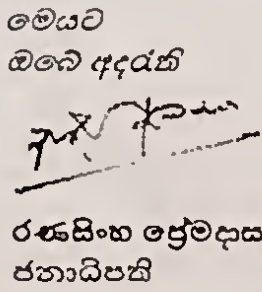 මෙයට
ඔබේ අදරැති
රණසිංහ ප්‍රේමදාස
ජනාධිපති